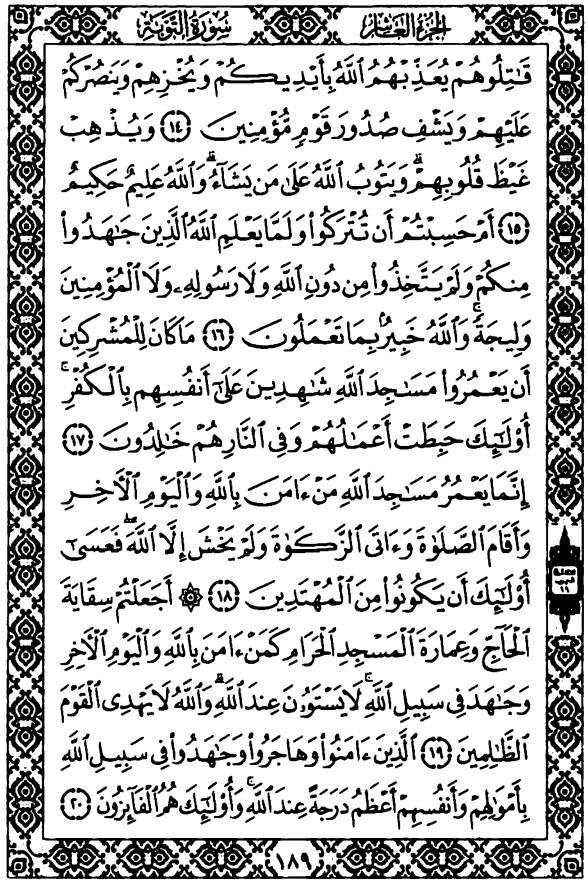 سُورَةُ التَّوْبَةِ
الجُزْءُ العَاشِرُ
قَٰتِلُوهُمْ يُعَذِّبْهُمُ ٱللَّهُ بِأَيْدِيكُمْ وَيُخْزِهِمْ وَيَنصُرْكُمْ
عَلَيْهِمْ وَيَشْفِ صُدُورَ قَوْمٍ مُّؤْمِنِينَ ١٤ وَيُذْهِبْ
غَيْظَ قُلُوبِهِمْ ۗ وَيَتُوبُ ٱللَّهُ عَلَىٰ مَن يَشَآءُ ۗ وَٱللَّهُ عَلِيمٌ حَكِيمٌ
١٥ أَمْ حَسِبْتُمْ أَن تُتْرَكُوا۟ وَلَمَّا يَعْلَمِ ٱللَّهُ ٱلَّذِينَ جَٰهَدُوا۟
مِنكُمْ وَلَمْ يَتَّخِذُوا۟ مِن دُونِ ٱللَّهِ وَلَا رَسُولِهِۦ وَلَا ٱلْمُؤْمِنِينَ
وَلِيجَةً ۚ وَٱللَّهُ خَبِيرٌۢ بِمَا تَعْمَلُونَ ١٦ مَا كَانَ لِلْمُشْرِكِينَ
أَن يَعْمُرُوا۟ مَسَٰجِدَ ٱللَّهِ شَٰهِدِينَ عَلَىٰٓ أَنفُسِهِم بِٱلْكُفْرِ ۚ
أُو۟لَٰٓئِكَ حَبِطَتْ أَعْمَٰلُهُمْ وَفِى ٱلنَّارِ هُمْ خَٰلِدُونَ ١٧
إِنَّمَا يَعْمُرُ مَسَٰجِدَ ٱللَّهِ مَنْ ءَامَنَ بِٱللَّهِ وَٱلْيَوْمِ ٱلْءَاخِرِ
وَأَقَامَ ٱلصَّلَوٰةَ وَءَاتَى ٱلزَّكَوٰةَ وَلَمْ يَخْشَ إِلَّا ٱللَّهَ ۖ فَعَسَىٰٓ
أُو۟لَٰٓئِكَ أَن يَكُونُوا۟ مِنَ ٱلْمُهْتَدِينَ ١٨ ۞ أَجَعَلْتُمْ سِقَايَةَ
ٱلْحَآجِّ وَعِمَارَةَ ٱلْمَسْجِدِ ٱلْحَرَامِ كَمَنْ ءَامَنَ بِٱللَّهِ وَٱلْيَوْمِ ٱلْءَاخِرِ
وَجَٰهَدَ فِى سَبِيلِ ٱللَّهِ ۚ لَا يَسْتَوُۥنَ عِندَ ٱللَّهِ ۗ وَٱللَّهُ لَا يَهْدِى ٱلْقَوْمَ
ٱلظَّٰلِمِينَ ١٩ ٱلَّذِينَ ءَامَنُوا۟ وَهَاجَرُوا۟ وَجَٰهَدُوا۟ فِى سَبِيلِ ٱللَّهِ
بِأَمْوَٰلِهِمْ وَأَنفُسِهِمْ أَعْظَمُ دَرَجَةً عِندَ ٱللَّهِ ۚ وَأُو۟لَٰٓئِكَ هُمُ ٱلْفَآئِزُونَ ٢٠
١٨٩